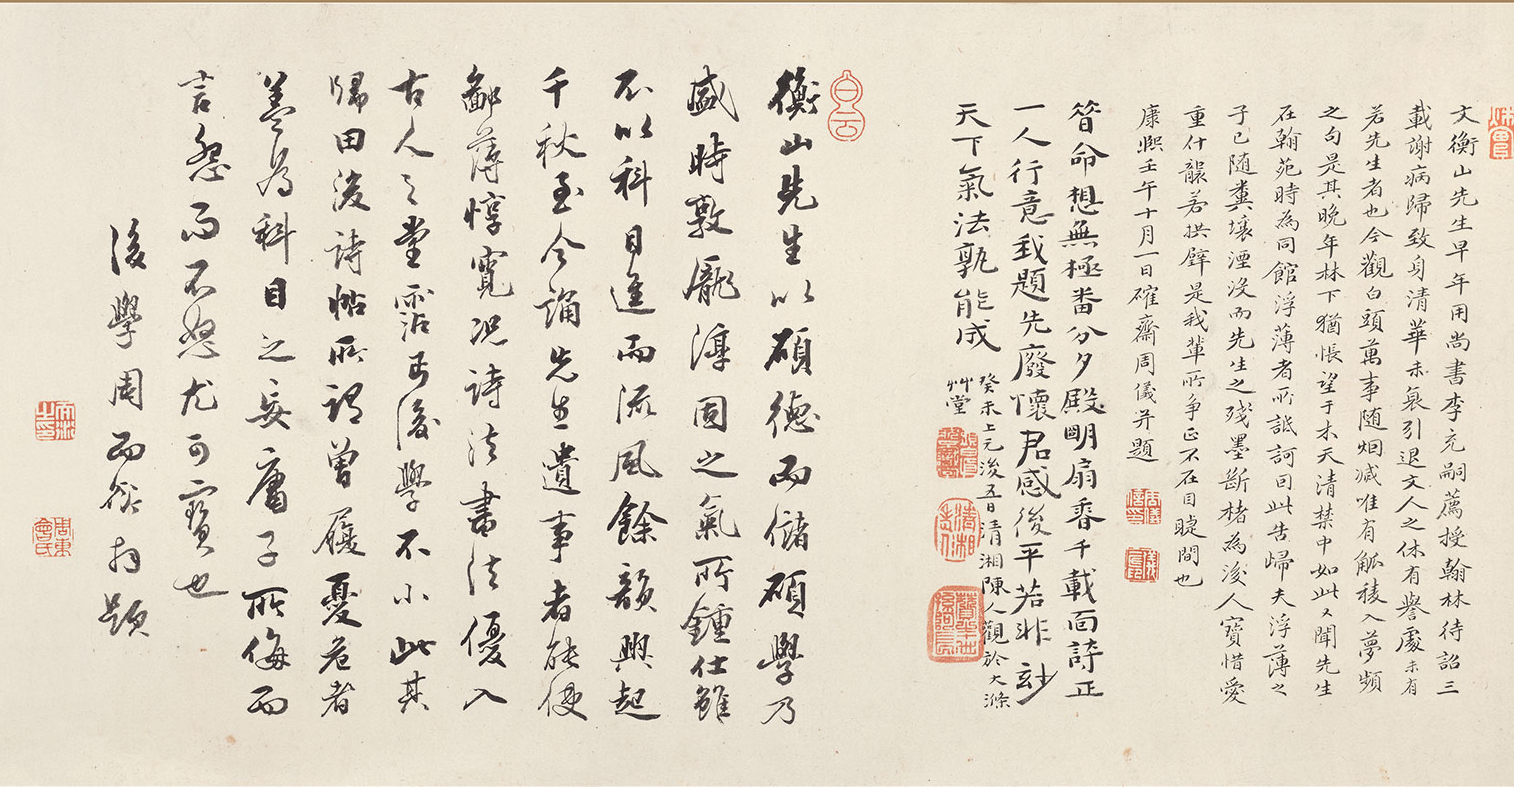 文衡山先生早年用尚書李充嗣薦授翰林待詔三
載謝病歸致身清華未衰引退文人之休有譽處未有
若先生者也今觀白頭萬事随烟滅唯有觚稜入夢頻
之句是其晚年林下猶悵望于木天清禁中如此又聞先生
在翰苑時為同館浮薄者所詆訶曰此告歸夫浮薄之
子已随糞壤湮没而先生之殘墨斷楮為後人寶惜愛
重什襲若拱璧是我輩所争正不在目睫間也
康熙壬午十月一日確齋周儀并題
簪命想無極番分夕殿明扇香千載面詩正
一人行意我題先廢懷君感後平若非玅
天下氣法孰能成
癸未上元後五日清湘陳人觀於大滌
艸堂
白云
衡山先生以碩德而儲碩學乃
盛時敦龐淳固之氣所鍾仕雖
不以科目進而流風餘韻興起
千秋至今誦先生遺事者能使
鄙薄惇寛况詩法書法優入
古人之堂霑丐後學不小此其
歸田後詩帖所謂曾履憂危者
盖為科目之妄庸子所侮而
言怨而不怒尤可寶也
後學周而衍拜題